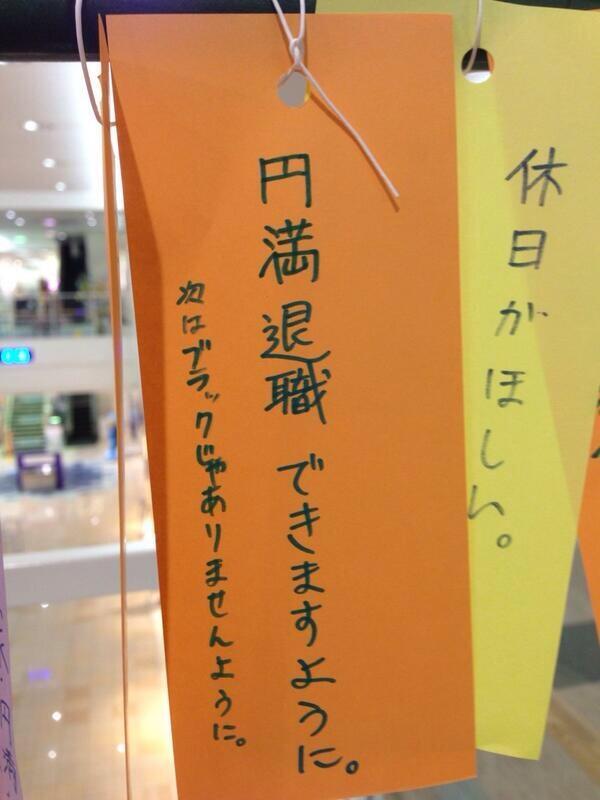 休日がほしい。
円満退職できますように。
次はブラックじゃありませんように。